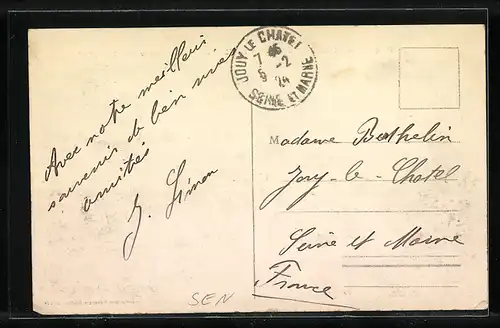 Avec notre meilleur
souvenir de bien vives
amitiés
J. Simon
JOUY-LE-CHATEL
7 -2
SEINE ET MARNE
Madame Berthelin
Jouy-le-Chatel
Seine et Marne
France
SEN